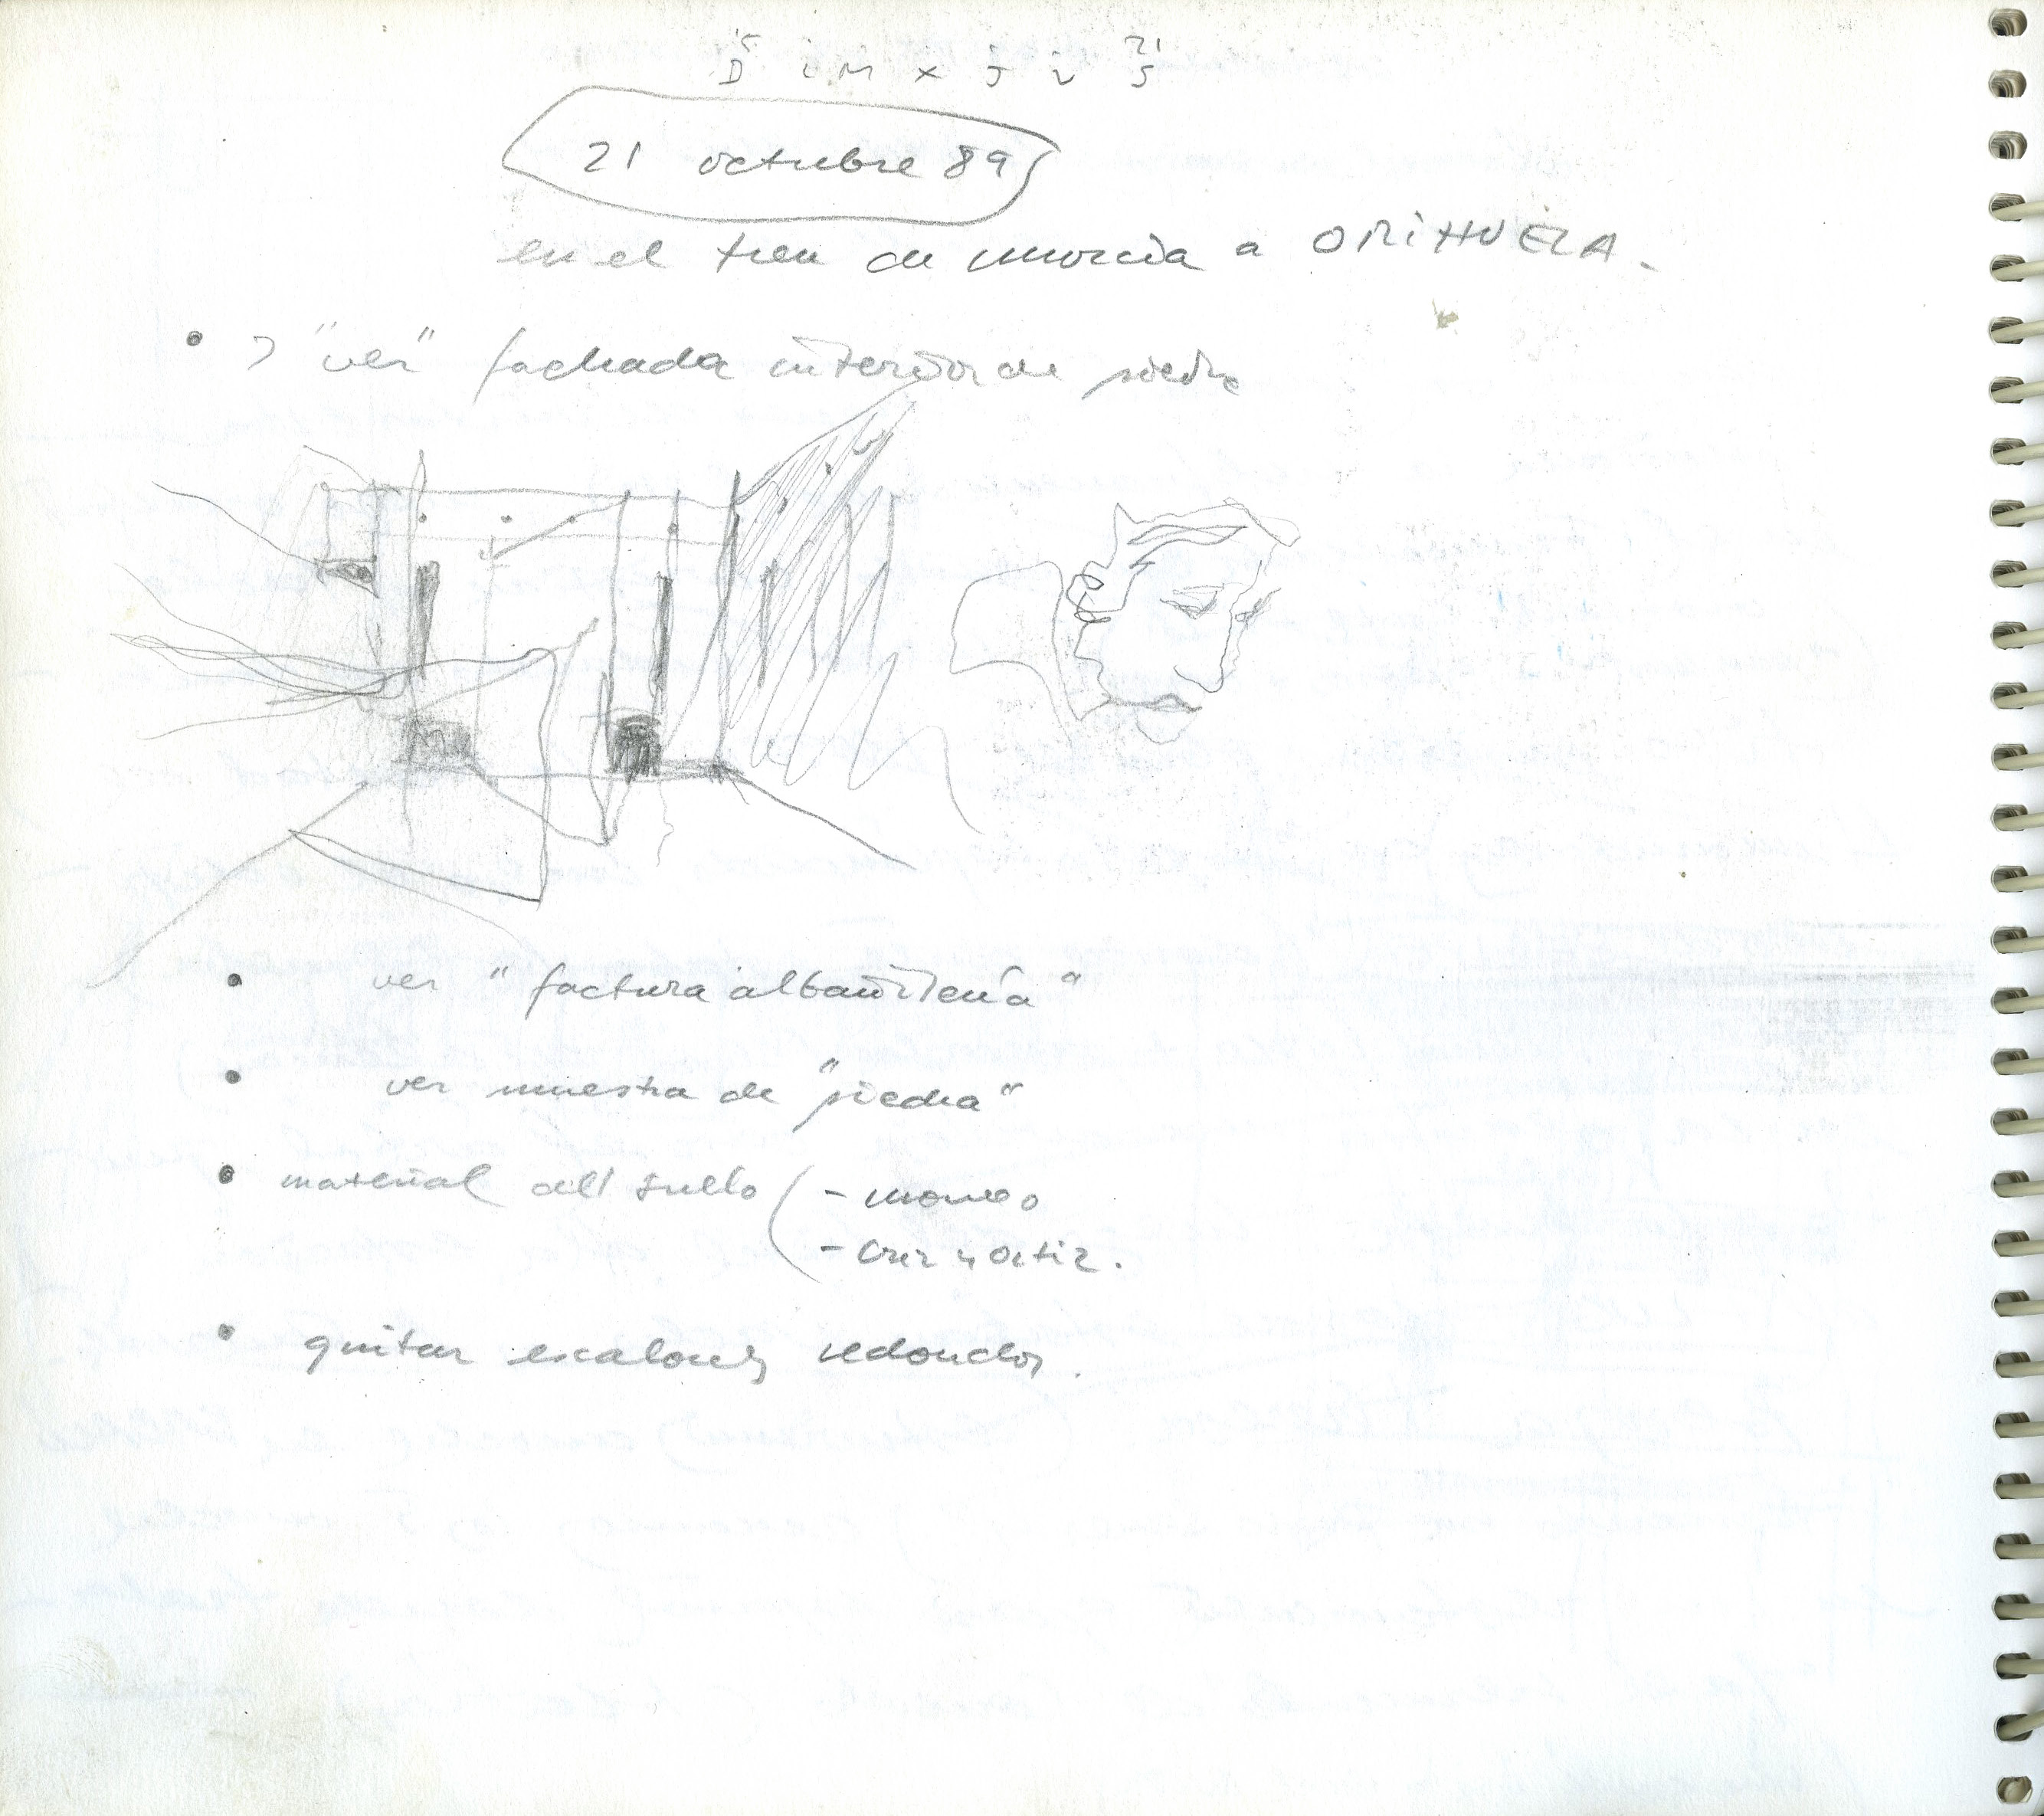 15 21
D L M X J V S
21 octubre 89
en el tren de murcia a ORIHUELA.
• > "ver" fachada interior de piedra
• ver "factura albañilería"
• ver muestra de "piedra"
• material del suelo ( - moneo
- cruz y ortiz.
• quitar escalones redondos.